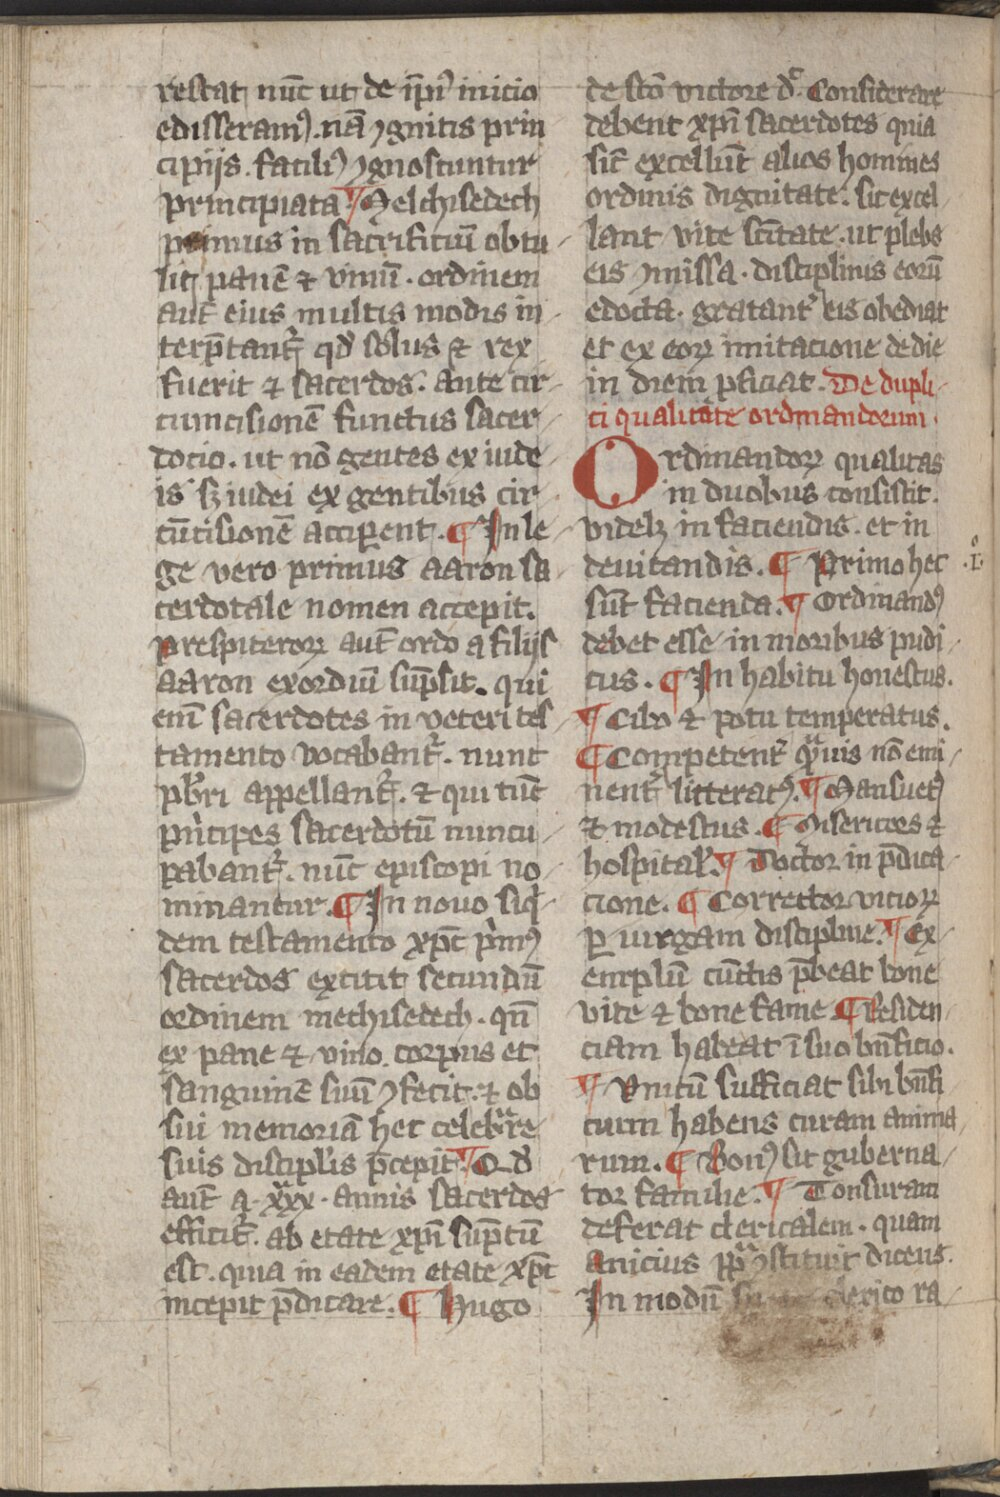 restat nūc ut de ip̄i⁹ inicio
edisseram⁹. nā ꝯgnitis prin
cipijs. facili⁹ ꝯgnoscuntur
principiata ¶ Melchisedech
primus in sacrificiū obtu
lit panē ⁊ vinū. ordinem
aut̄ eius multis modis in
terp̄tant᷑ qd̓ solus ⁊ rex
fuerit ⁊ sacerdos. Ante cir
cumcisionē functus sacer
docio. ut nō gentes ex iude
is sꝫ iudei ex gentibus cir
cūcisionē acciꝑent. ¶ In le
ge vero primus aaron sa
cerdotale nomen accepit.
prespiteroꝝ aut̄ ordo a filijs
aaron exordiū sūpsit. qui
em̄ sacerdotes in veteri tes
tamento vocabant᷑. nunc
pb̄ri appellant᷑. ⁊ qui tūc
pⁱncipes sacerdotū nuncu
pabant᷑. nūc episcopi no
minantur. ¶ In nouo siqⁱ
dem testamento xp̄c pⁱm⁹
sacerdos extitit secundū
ordinem mechisedech. qn̄
ex pane ⁊ vino. corpus et
sanguinē suū ꝯfecit. ⁊ ob
sui memoriā hec celebᵃre
suis discipl̓is p̄cepit ¶ Qd̓
aut̄ a .xxxᵃ. annis sacerdos
efficit᷑. ab etate xp̄i sūptū
est. quia in eadem etate xp̄c
incepit p̄dicare. ¶ Hugo
de sc̄o victore dᶜ. Considerare
debent xp̄i sacerdotes quia
sic̄ excellūt alios homines
ordinis dignitate. sic excel
lant vite sc̄itate. ut plebs
eis ꝯmissa. disciplinis eorū
edocta. gratant᷑ eis obediat
et ex eoꝝ imitacione de die
in diem ꝓficiat. De dupli
ci qualitate ordinandorum.
Ordinandoꝝ qualitas
in duobus consistit.
videlꝫ in faciendis. et in
deuitandis. ¶ Primo hec
.Iº.
sūt facienda. ¶ Ordinand⁹
debet esse in moribus pudi
cus. ¶ In habitu honestus.
¶ Cibo ⁊ potu temperatus.
¶ Competent᷑ qᵃuis nō emi
nent᷑ litterat⁹. ¶ Mansuet⁹
⁊ modestus. ¶ Misericors ⁊
hospital̓. ¶ Doctor in p̄dica
cione. ¶ Corrector vicioꝝ
ꝑ uirgam discipline. ¶ Ex
emplū cūctis p̄beat bone
vite ⁊ bone fame ¶ Residen
ciam habeat ī suo bn̄ficio.
¶ Vnicū sufficiat sibi bn̄fi
cium habens curam anima
rum. ¶ Bon⁹ sit guberna
tor familie. ¶ Tonsuram
deferat clericalem. quam
anicius pp̄ᵃ ꝯstituit dicens.
In modū clerico ra